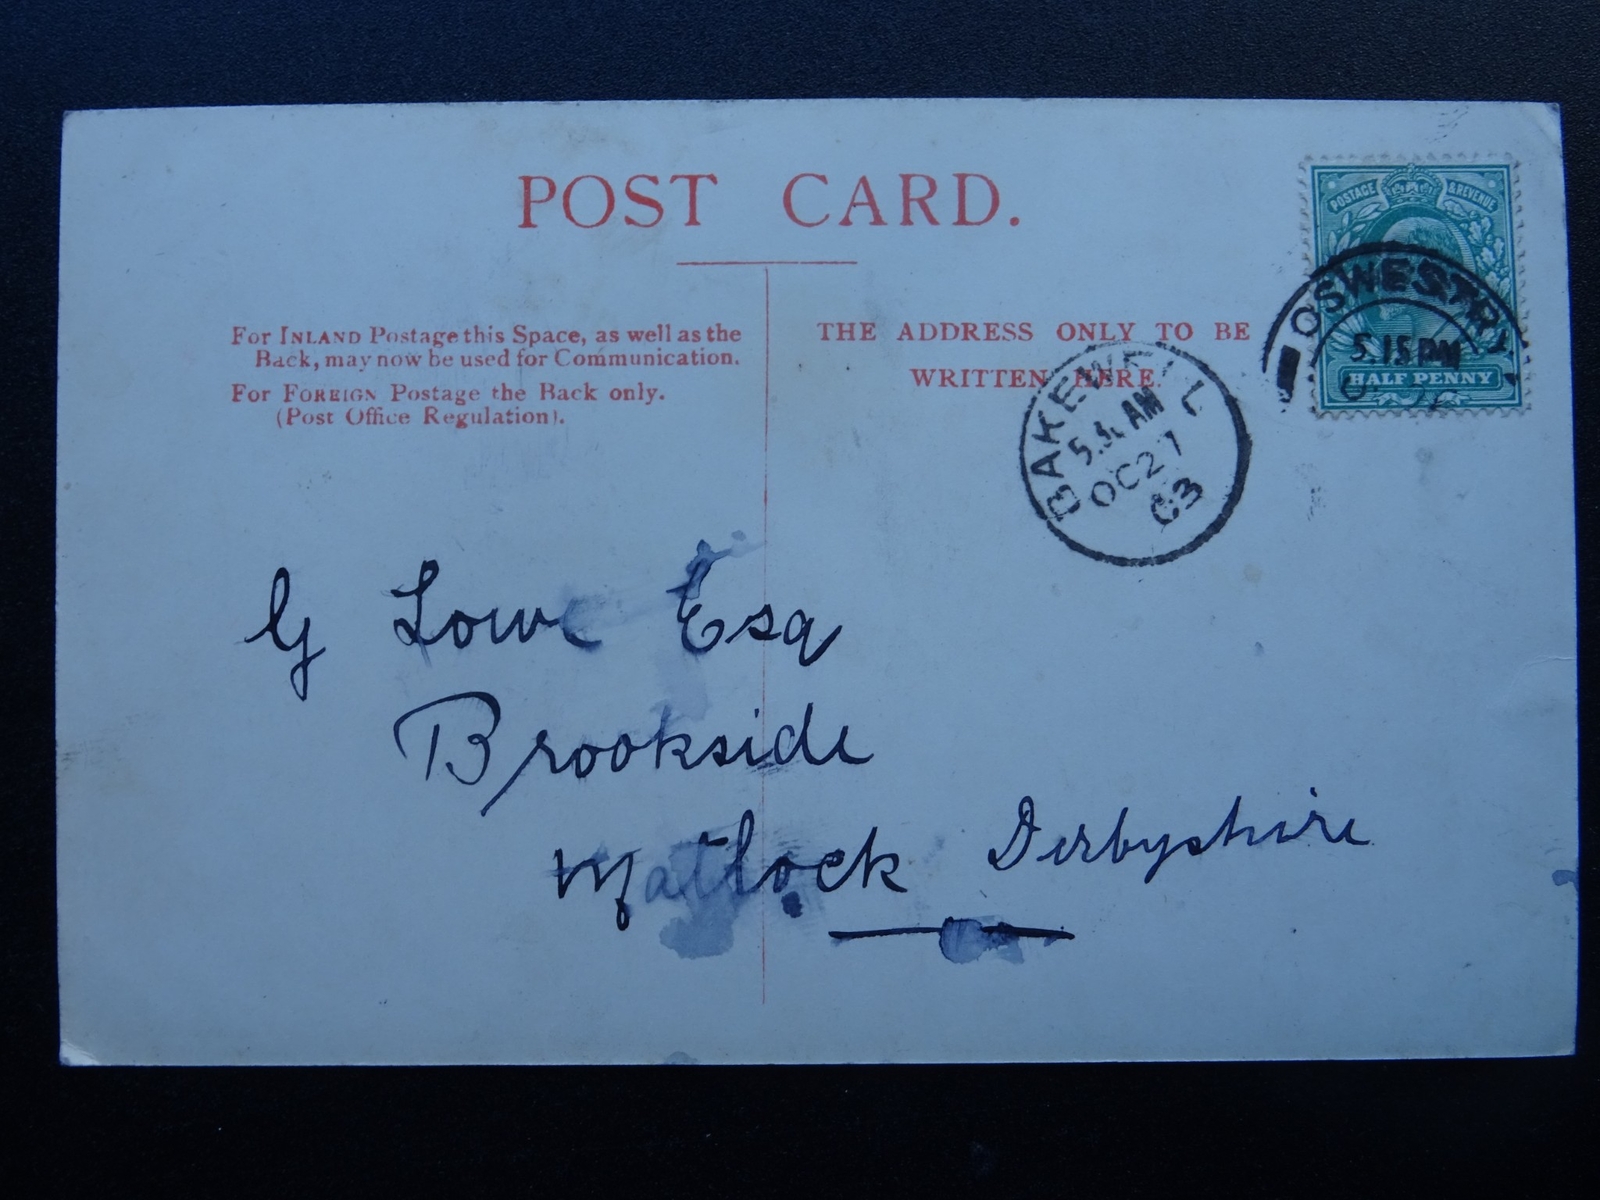 POST CARD.
POSTAGE & REVENUE
OSWESTRY
5.15 PM
HALF PENNY
For INLAND Postage this Space, as well as the
Back, may now be used for Communication.
For FOREIGN Postage the Back only.
(Post Office Regulation).
THE ADDRESS ONLY TO BE
WRITTEN HERE.
BAKEWELL
AM
OC 27
03
G Lowe Esq
Brookside
Matlock Derbyshire